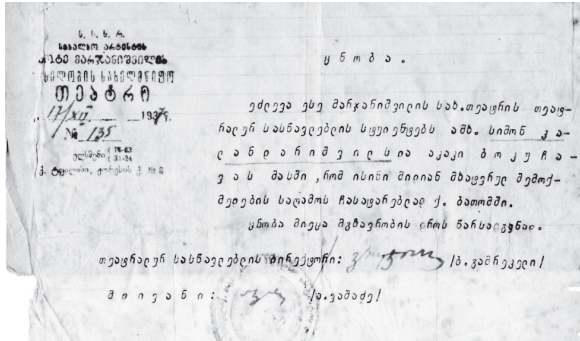 ს. ს. ს. რ.
სახალხო არტისტის
კოტე მარჯანიშვილის
სახელობის სახელმწიფო
თეატრი
17/XII 1937წ.
№ 135
ქ. ტფილისი,
ც ნ ო ბ ა .
ეძლევა ესე მარჯანიშვილის სახ.თეატრის თეატ-
რალურ სასწავლებლის სტუდენტებს ამხ. სიმონ კა-
ლ ა ნ დ ა რ ი შ ვ ი ლ ს და აკაკი ბ ო კ უ ჩ ა -
ვ ა ს მასში ,რომ ისინი მიდიან მხატვრულ შემოქ-
მედების საღამოს ჩასატარებლად ქ. ბათომში.
ცნობა მიეცა მგზავრობის დროს წარსადგენად.
თეატრალურ სასწავლებლის დირექტორი: /ბ.გამრეკელი/
მ დ ი ვ ა ნ ი : /ა.ვაშაძე/